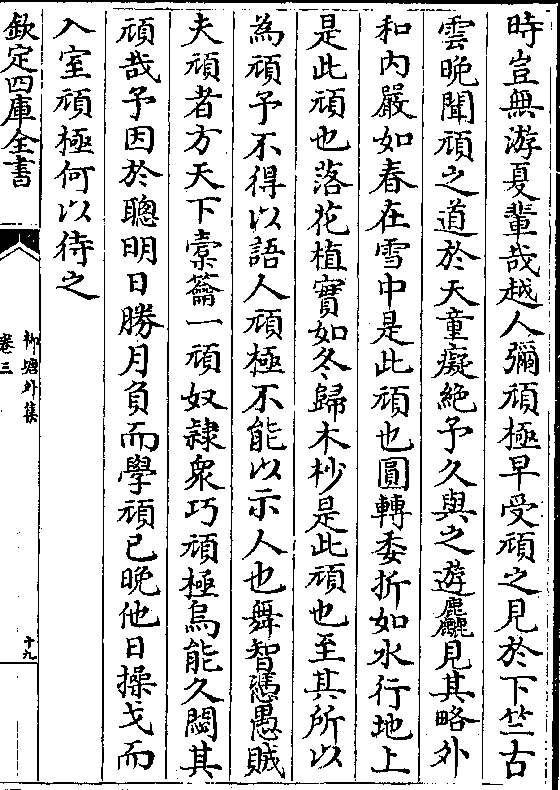 時豈無游夏輩哉越人彌頑極早受頑之見於下竺古
雲晚聞頑之道於天童癡絶予久與之遊麤見其略外
和内嚴如春在雪中是此頑也圓轉委折如水行地上
是此頑也落花植實如冬歸木杪是此頑也至其所以
為頑予不得以語人頑極不能以示人也舞智憑愚賊
夫頑者方天下橐籥一頑奴隷衆巧頑極烏能久閟其
頑哉予因於聰明日勝月負而學頑已晚他日操戈而
入室頑極何以待之
欽定四庫全書
柳塘外集
卷三
十九